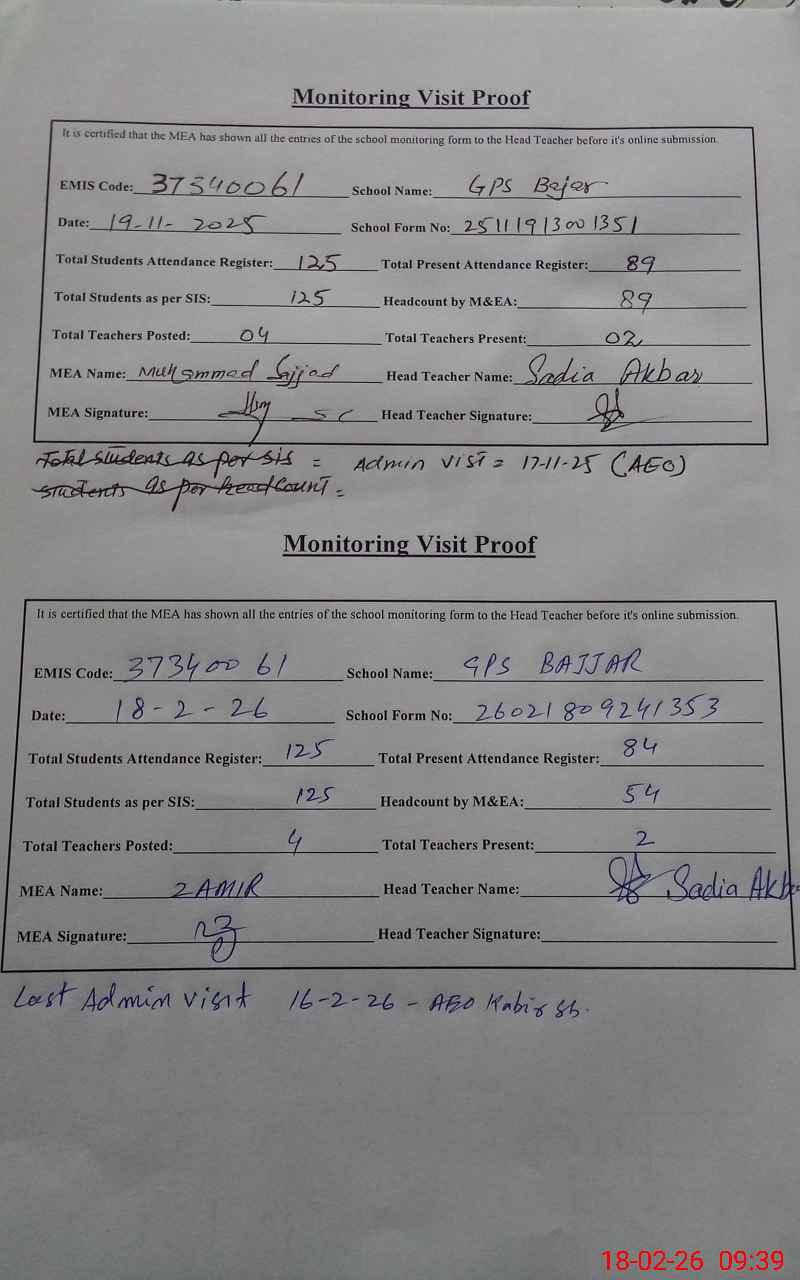 Monitoring Visit Proof
It is certified that the MEA has shown all the entries of the school monitoring form to the Head Teacher before it's online submission.
EMIS Code: 37340061 School Name: GPS Bajar
Date: 19-11-2025 School Form No: 25111913001351
Total Students Attendance Register: 125 Total Present Attendance Register: 89
Total Students as per SIS: 125 Headcount by M&EA: 89
Total Teachers Posted: 04 Total Teachers Present: 02
MEA Name: Muhammad Sajjad Head Teacher Name: Sadia Akbar
MEA Signature: Head Teacher Signature:
Total students as per SIS = Admin visit = 17-11-25 (AEO)
students as per headcount =
Monitoring Visit Proof
It is certified that the MEA has shown all the entries of the school monitoring form to the Head Teacher before it's online submission.
EMIS Code: 37340061 School Name: GPS BAJJAR
Date: 18-2-26 School Form No: 26021809241353
Total Students Attendance Register: 125 Total Present Attendance Register: 84
Total Students as per SIS: 125 Headcount by M&EA: 54
Total Teachers Posted: 4 Total Teachers Present: 2
MEA Name: ZAMIR Head Teacher Name: Sadia Akb
MEA Signature: Head Teacher Signature:
Last Admin visit 16-2-26 - AEO Kabir sb.
18-02-26 09:39